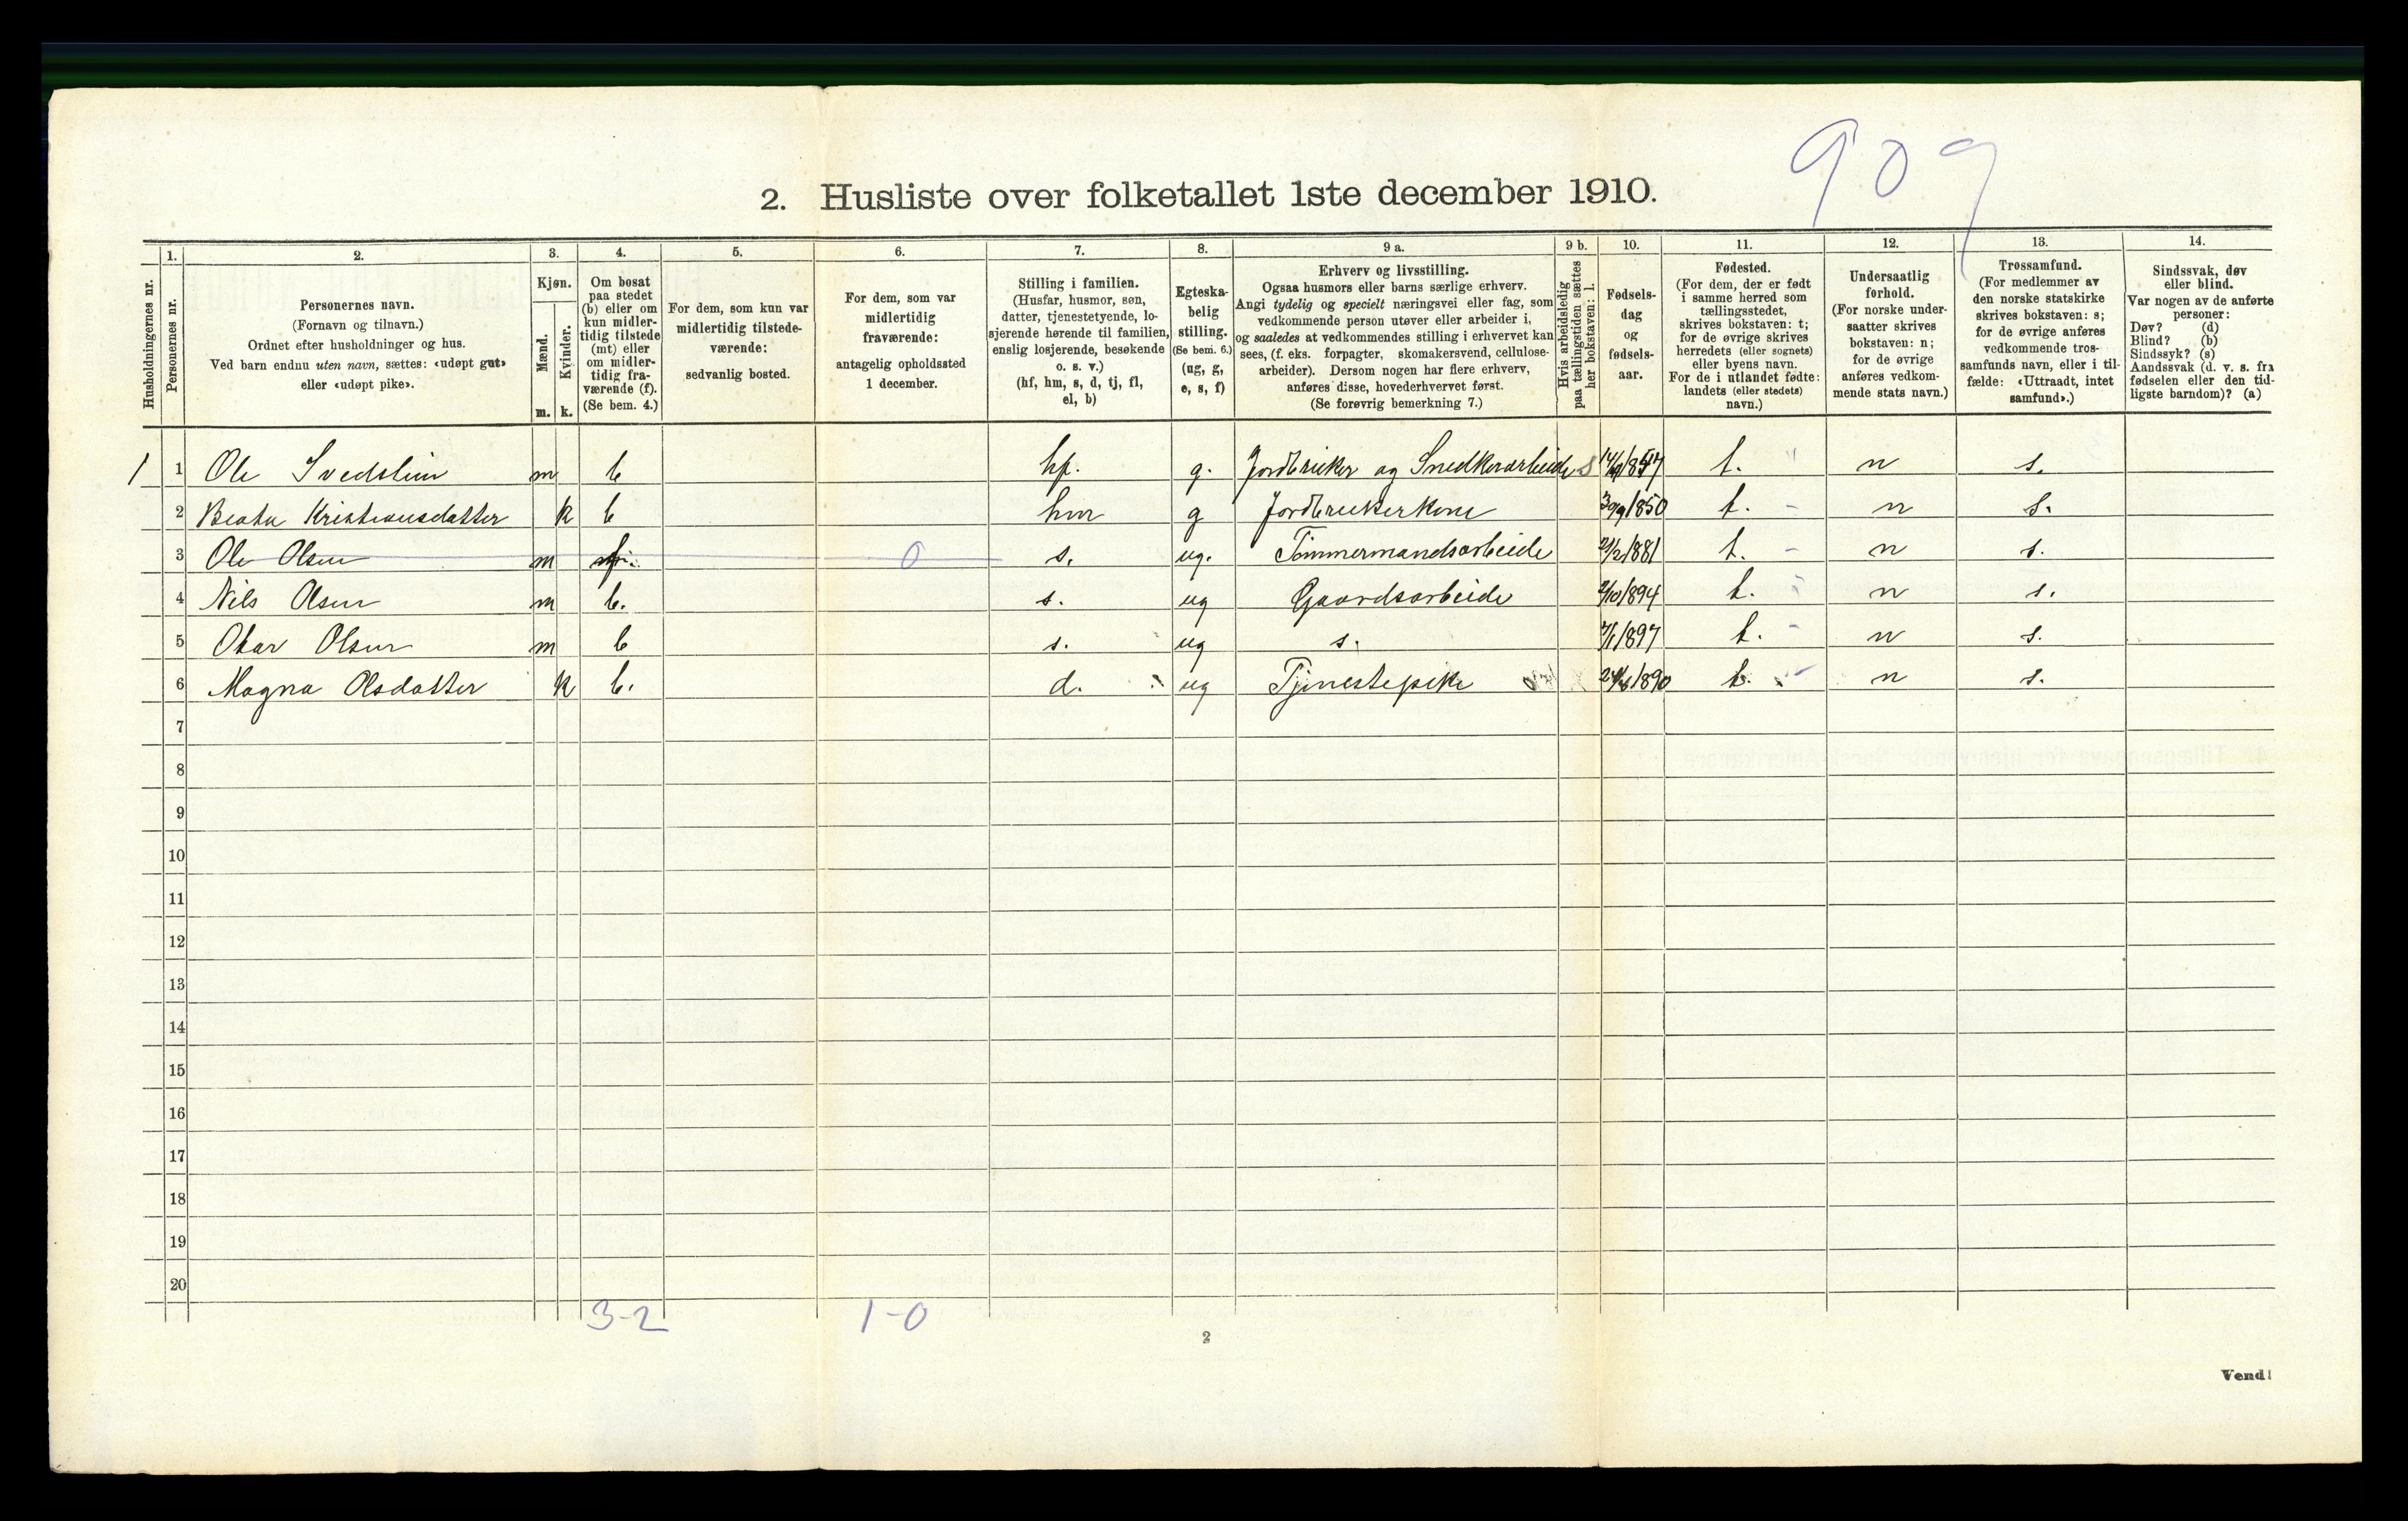 909
2. Husliste over folketallet 1ste december 1910.
Husholdningernes nr.
1. Personernes nr.
2. Personernes navn. (Fornavn og tilnavn.) Ordnet efter husholdninger og hus. Ved barn endnu uten navn, sættes: «udøpt gut» eller «udøpt pike».
3. Kjøn. Mænd. m. Kvinder. k.
4. Om bosat paa stedet (b) eller om kun midlertidig tilstede (mt) eller om midlertidig fraværende (f). (Se bem. 4.)
5. For dem, som kun var midlertidig tilstedeværende: sedvanlig bosted.
6. For dem, som var midlertidig fraværende: antagelig opholdssted 1 december.
7. Stilling i familien. (Husfar, husmor, søn, datter, tjenestetyende, losjerende hørende til familien, enslig losjerende, besøkende o. s. v.) (hf, hm, s, d, tj, fl, el, b)
8. Egteskabelig stilling. (Se bem. 6.) (ug, g, e, s, f)
9 a. Erhverv og livsstilling. Ogsaa husmors eller barns særlige erhverv. Angi tydelig og specielt næringsvei eller fag, som vedkommende person utøver eller arbeider i, og saaledes at vedkommendes stilling i erhvervet kan sees, (f. eks. forpagter, skomakersvend, cellulosearbeider). Dersom nogen har flere erhverv, anføres disse, hovederhvervet først. (Se forøvrig bemerkning 7.)
9 b. Hvis arbeidsledig paa tællingstiden sættes her bokstaven: l.
10. Fødselsdag og fødselsaar.
11. Fødested. (For dem, der er født i samme herred som tællingsstedet, skrives bokstaven: t; for de øvrige skrives herredets (eller sognets) eller byens navn. For de i utlandet fødte: landets (eller stedets) navn.)
12. Undersaatlig forhold. (For norske undersaatter skrives bokstaven: n; for de øvrige anføres vedkommende stats navn.)
13. Trossamfund. (For medlemmer av den norske statskirke skrives bokstaven: s; for de øvrige anføres vedkommende trossamfunds navn, eller i tilfælde: «Uttraadt, intet samfund».)
14. Sindssvak, døv eller blind. Var nogen av de anførte personer: Døv? (d) Blind? (b) Sindssyk? (s) Aandssvak (d. v. s. fra fødselen eller den tidligste barndom)? (a)
1 1 Ole Svedslien m b hf. g. Jordbruker og Snedkerarbeide t. n s.
2 Beate Kristiansdatter k b hm g Jordbrukerkone 30/9 1850 t. n s.
3 Ole Olsen m 0 s. ug. Tømmermandsarbeide t. n s.
4 Nils Olsen m b. s. ug Gaardsarbeide t. n s.
5 Otar Olsen m b s. ug s. t. n s.
6 Magna Olsdatter k b. d. ug Tjenestepike t. n s.
7
8
9
10
11
12
13
14
15
16
17
18
19
20
3-2 1-0
2
Vend!